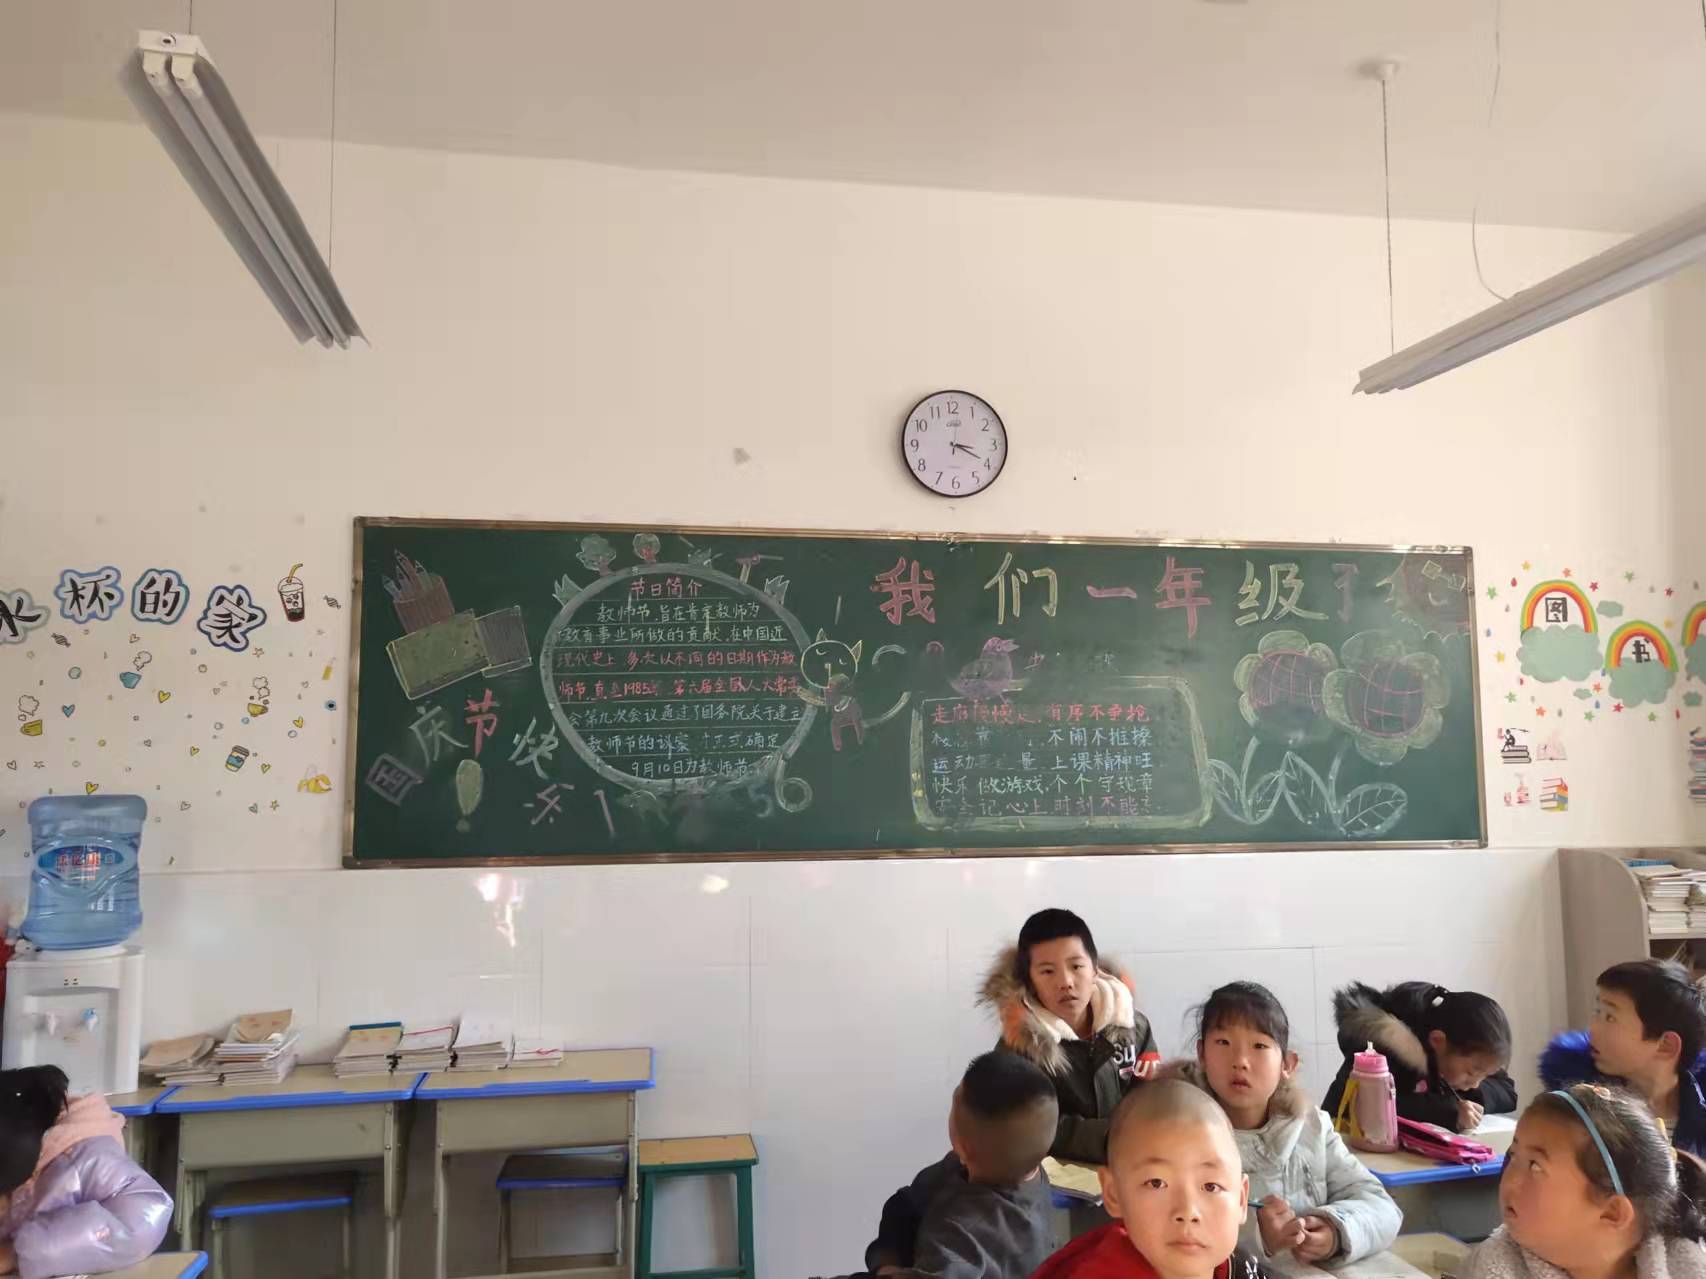 水杯的家
12
1
2
3
4
5
6
7
8
9
10
11
我们一年级
国庆节快乐
节日简介
教师节,旨在肯定教师为
教育事业所做的贡献,在中国近
现代史上,多次以不同的日期作为教
师节,直至1985年,第六届全国人大常
会第九次会议通过了国务院关于建立
教师节的议案,正式确定
9月10日为教师节
有序不争抢
不闹不推搡
运动 上课精神旺
快乐做游戏,个个守规章
记心上,时刻不能
图
书